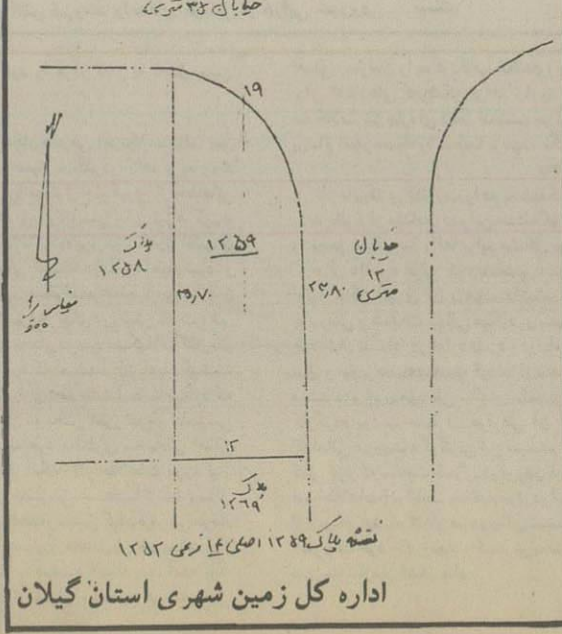 خیابان ۳۵ متری
۱۹
پلاک
۱۲۵۸
۱۲۵۹
خیابان
۱۲
متری
۳۵٫۷۰
۲۳٫۸۰
مقیاس
۱۲
پلاک
۱۲۶۹
نقشه پلاک ۱۲۵۹ اصلی ۱۴ فرعی ۱۲۵۲
اداره کل زمین شهری استان گیلان